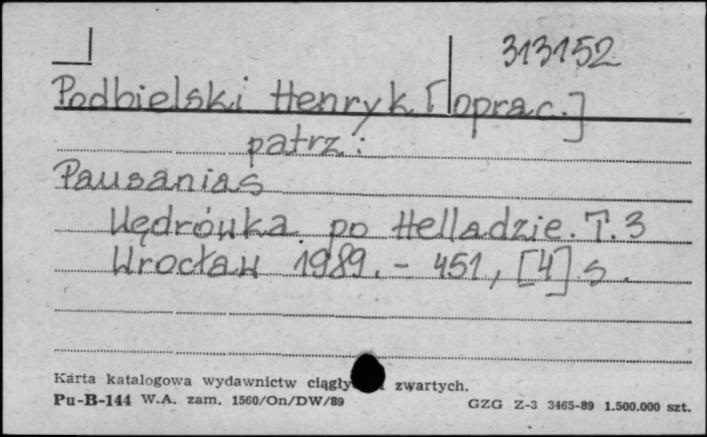 313152
Podbielski Henryk [oprac.]
patrz:
Pausanias
Wędrówka po Helladzie. T. 3
Wrocław 1989. - 451, [4] s.
Karta katalogowa wydawnictw ciągły zwartych.
Pu-B-144 W.A. zam. 1560/On/DW/89 GZG Z-3 3465-89 1.500.000 szt.